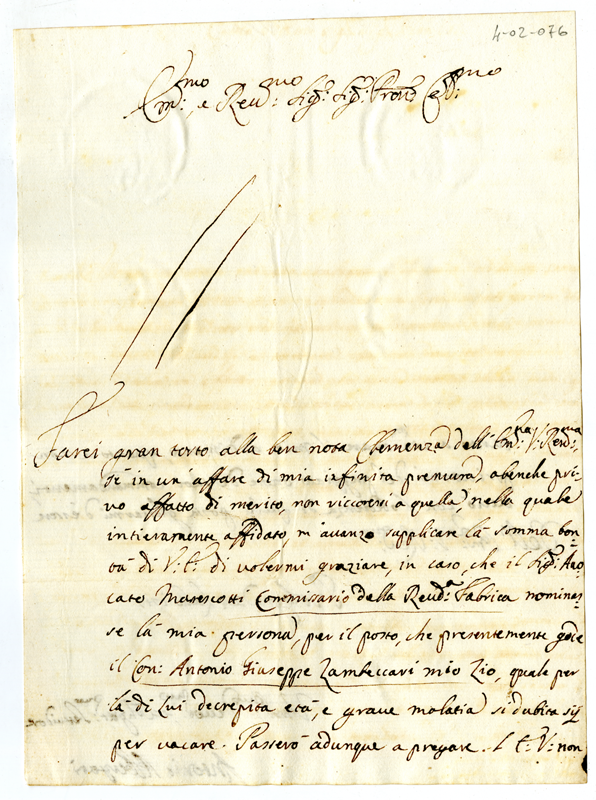 4-02-076
Em:mo, e Reu:mo Sig:r Sig:r Prone Col:mo
Farei gran torto alla ben nota Clemenza dell' Em:za V: Reud:ma
se in un' affare di mia infinita premura, abenche pri-
vo affatto di merito, non riccoressi a quella, nella quale
intieramente affidato, m'avanzo supplicare la somma bon
tà di V: E: di volermi graziare, in caso, che il Sig:r Auo
cato Marescotti Commissario della Reud:a Fabrica nominas
se la mia persona, per il posto, che presentemente gode
il Con: Antonio Giuseppe Zambeccari mio Zio, quale per
la di lui decrepita età, e grave malatia si dubita sij
per vacare. Passerò adunque a pregare l' E: V: non